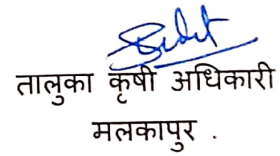 तालुका कृषी अधिकारी
मलकापुर .